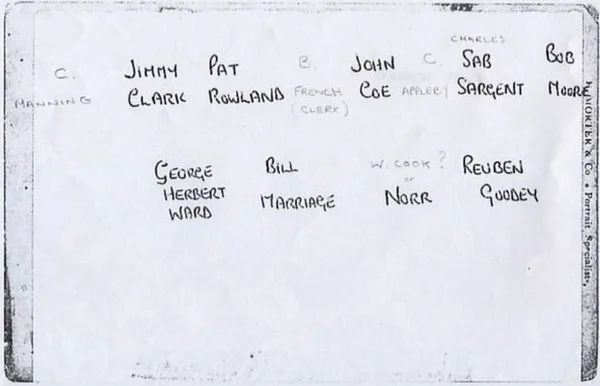 CHARLES
C. JIMMY PAT B. JOHN C. SAB BOB
MANNING CLARK ROWLAND FRENCH COE APPLEBY SARGENT MOORE
(CLERK)
GEORGE BILL W. COOK? REUBEN
HERBERT or
WARD MARRIAGE NORR GOODEY
& Co • Portrait Specialists,